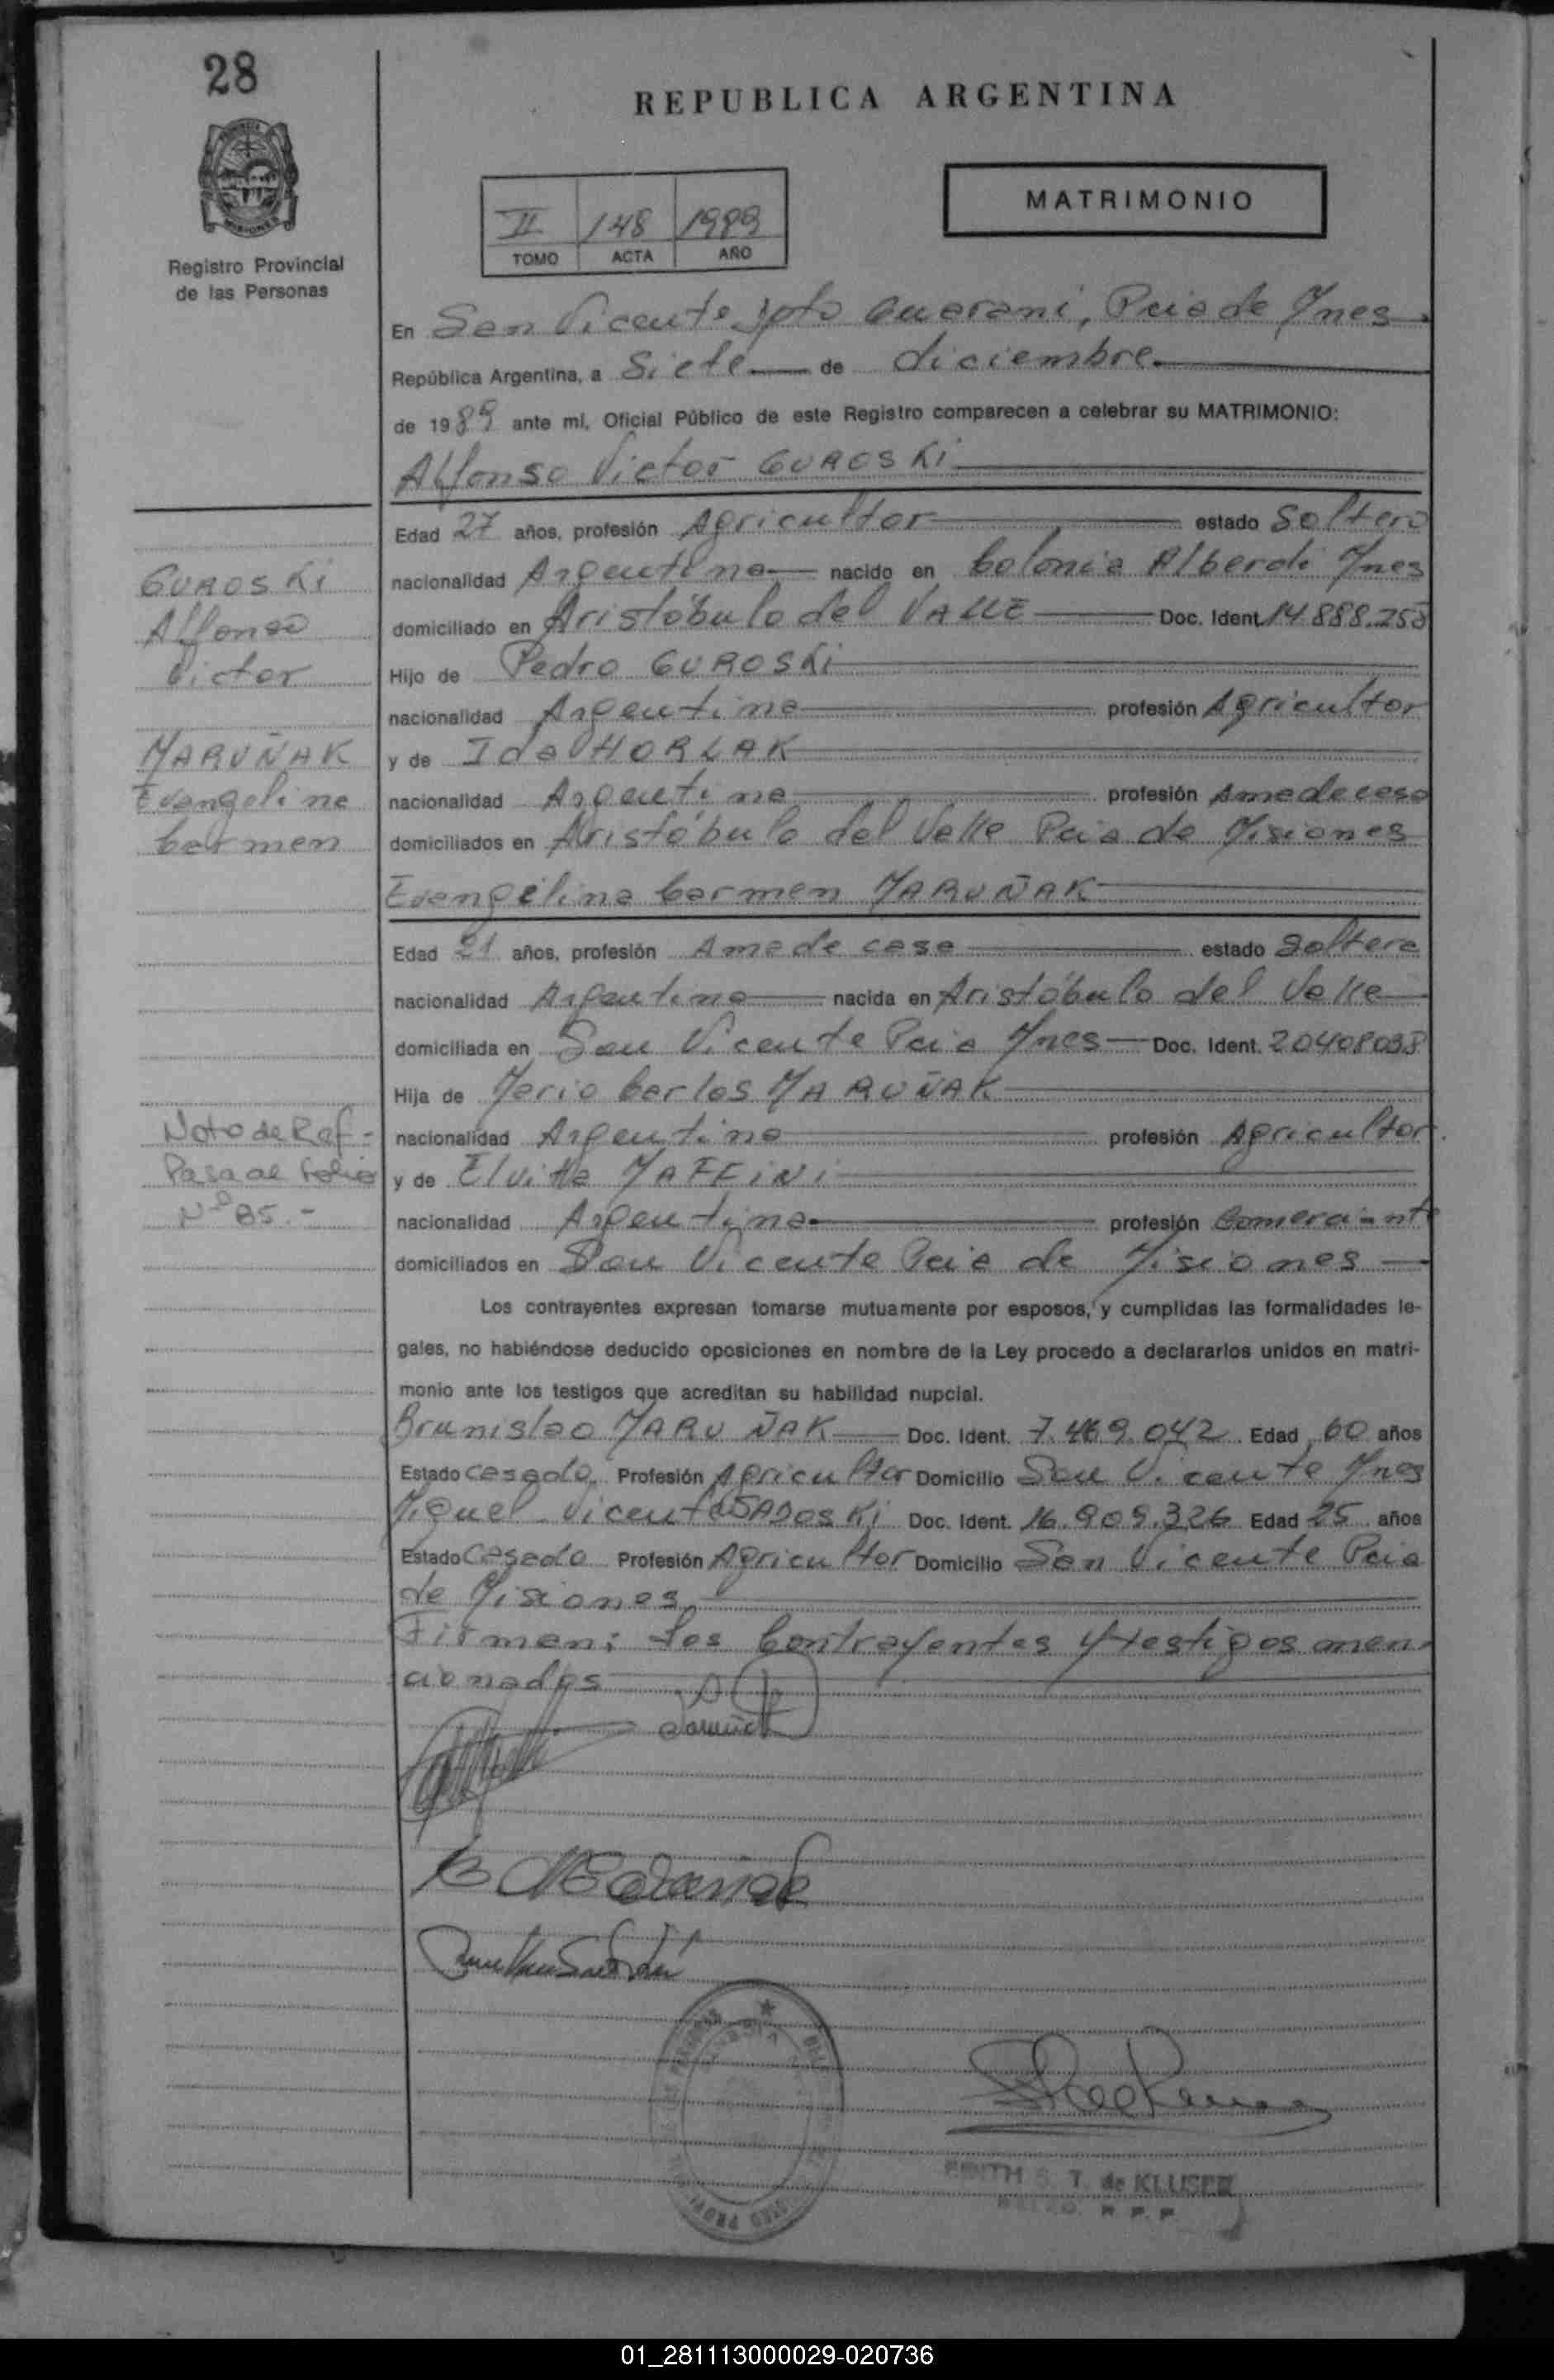 28
REPUBLICA ARGENTINA
MATRIMONIO
II 148 1989
TOMO ACTA AÑO
Registro Provincial
de las Personas
En San Vicente Dpto Guarani, Pcia de Mnes
República Argentina, a Siete de diciembre
de 1989 ante mi, Oficial Público de este Registro comparecen a celebrar su MATRIMONIO:
Alfonso Victor GUROSKi
Edad 27 años, profesión Agricultor estado Soltero
GUROSKi
Alfonso
Victor
nacionalidad Argentina nacido en Colonia Alberdi Mnes
domiciliado en Aristóbulo del VALLE Doc. Ident. 14.888.253
Hijo de Pedro GUROSKi
nacionalidad Argentina profesión Agricultor
MARUÑAK
Evangelina
Carmen
y de Ida HORLAK
nacionalidad Argentina profesión Ama de casa
domiciliados en Aristóbulo del Valle Pcia de Misiones
Evangelina Carmen MARUÑAK
Edad 21 años, profesión Ama de casa estado Soltera
nacionalidad Argentina nacida en Aristóbulo del Valle
domiciliada en San Vicente Pcia Mnes Doc. Ident. 20408038
Hija de Mario Carlos MARUÑAK
Nota de Ref-
Pasa al Folio
Nº 85.-
nacionalidad Argentina profesión Agricultor
y de Elvita MAFFiNi
nacionalidad Argentina profesión Comerciante
domiciliados en San Vicente Pcia de Misiones
Los contrayentes expresan tomarse mutuamente por esposos, y cumplidas las formalidades le-
gales, no habiéndose deducido oposiciones en nombre de la Ley procedo a declararlos unidos en matri-
monio ante los testigos que acreditan su habilidad nupcial.
Brunislao MARUÑAK Doc. Ident. 7.469.042 Edad 60 años
Estado Casado Profesión Agricultor Domicilio San Vicente Mnes
Miguel Vicente SADOSKi Doc. Ident. 16.909.326 Edad 25 años
Estado Casado Profesión Agricultor Domicilio San Vicente Pcia
de Misiones
Firman: Los Contrayentes y testigos men-
cionados
EDITH S. T. de KLUSER
R. P. P.
01_281113000029-020736